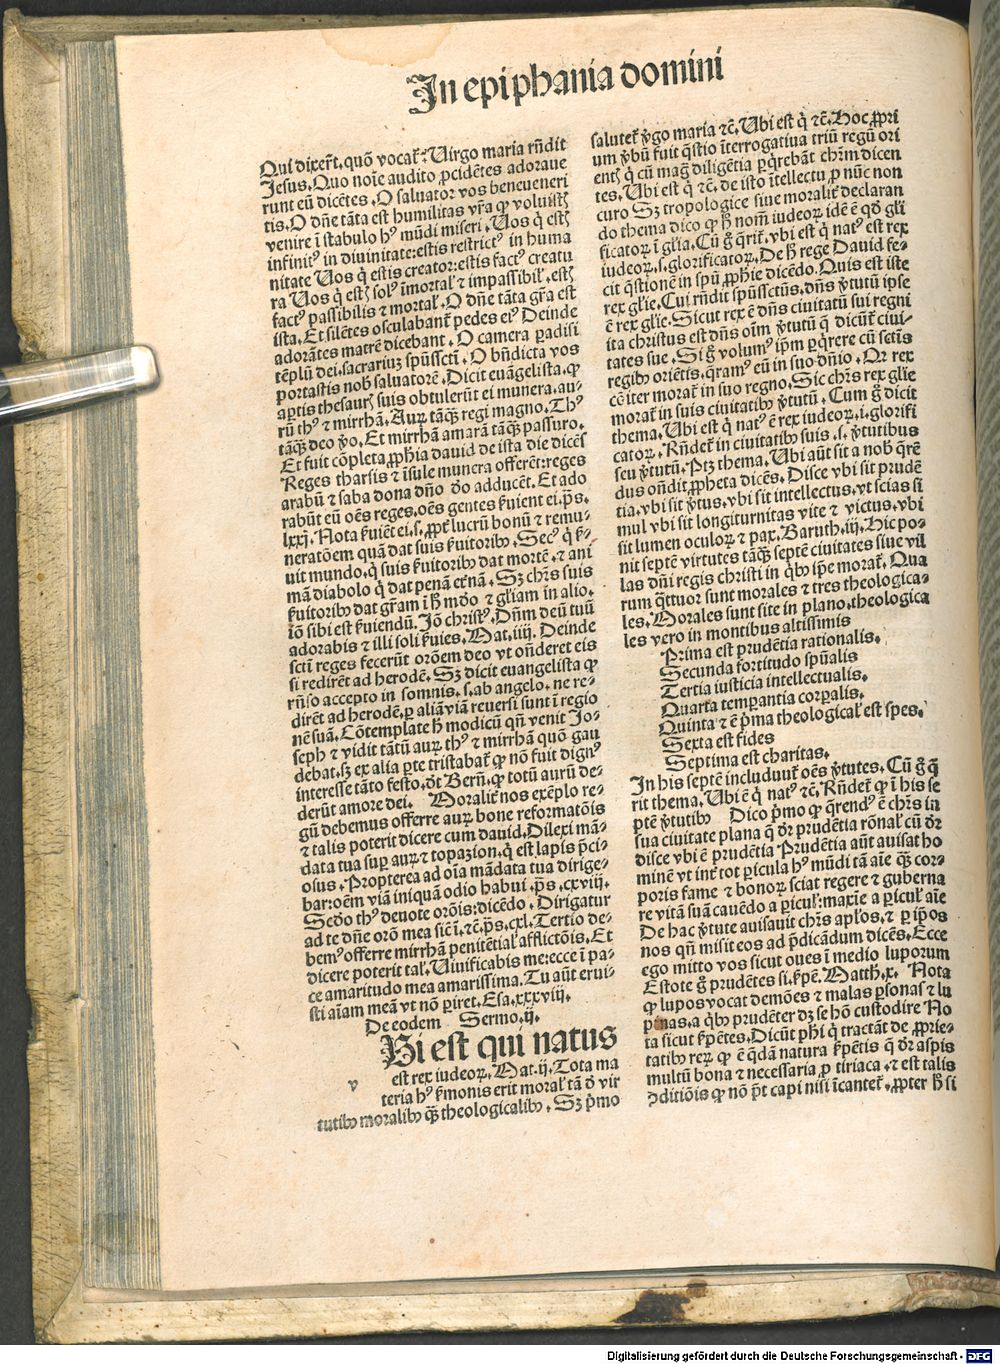 In epiphania domini
Qui dixerūt, quō vocať? Uirgo maria rn̄dit
Jesus. Quo noīe audito ꝓcidētes adoraue
runt eū dicētes. O saluator vos beneueneri
tis. O dn̄e tāta est humilitas vr̄a ꝙ voluistꝭ
venire ī stabulo hꝰ mūdi miseri. Uos q̇ estꝭ
infinitꝰ in diuinitate: estis restrictꝰ in huma
nitate Uos q̇ estis creator: estis factꝰ creatu
ra Uos q̇ estꝭ solꝰ īmortal̕ ⁊ impassibil̕. estꝭ
factꝰ passibilis ⁊ mortal̕. O dn̄e tāta gr̄a est
ista. Et silētes osculabant̕ pedes eiꝰ Deinde
adorātes matrē dicebant. O camera ꝑadisi
tēplū dei. sacrariuꝫ spūssctī. O bn̄dicta vos
portastis nob̕ saluatorē. Dicit euāgelista. ꝙ
aꝑtis thesaurꝭ suis obtulerūt ei munera. au-
rū thꝰ ⁊ mirrhā. Auꝝ tāqꝫ regi magno. Thꝰ
tāqꝫ deo v̓o. Et mirrhā amarā tāqꝫ passuro.
Et fuit cōpleta ꝓphīa dauid de ista die dicēs
Reges tharsis ⁊ īsule munera offerēt: reges
arabū ⁊ saba dona dn̄o dō adducēt. Et ado
rabūt eū oēs reges. oēs gentes ẜuient ei. ps̄.
lxxj. Nota ẜuiēt ei. s. ꝓpt̕ lucrū bonū ⁊ remu-
neratōem quā dat suis ẜuitoribꝰ. Secꝰ q̇ ẜ-
uit mundo. q̇ suis ẜuitoribꝰ dat mortē. ⁊ ani
mā diabolo q̇ dat penā et̕nā. Sꝫ chr̄s suis
ẜuitoribꝰ dat gr̄am ī hͦ mōdo ⁊ gl̄iam in alio.
Iō sibi est ẜuiendū. Iō christꝰ. Dn̄m deū tuū
adorabis ⁊ illi soli ẜuies. Mat. iiij. Deinde
sctī reges fecerūt orōem deo vt on̄deret eis
si redirēt ad herodē. Sꝫ dicit euangelista ꝙ
rn̄so accepto in somnis. s. ab angelo. ne re-
dirēt ad herodē. ꝑ aliā viā reuersi sunt ī regio
nē suā. Cōtemplate hͦ modicū qn̄ venit Jo-
seph ⁊ vidit tātū auꝝ thꝰ ⁊ mirrhā quō gau
debat. sꝫ ex alia ꝑte tristabat̕ ꝙ nō fuit dignꝰ
interesse tāto festo. dt̄ Bern̄. ꝙ totū aurū de-
derūt amore dei. Moralit̕ nos exēplo re-
gū debemus offerre auꝝ bone reformatōis
⁊ talis poterit dicere cum dauid. Dilexi mā-
data tua suꝑ auꝝ ⁊ topazion. q̇ est lapis p̄ci-
osus. Propterea ad oīa mādata tua dirige-
bar: oēm viā iniquā odio habui. ps̄. cxviij.
Sedo thꝰ deuote orōis: dicēdo. Dirigatur
ad te dn̄e orō mea sic̄ ī. ⁊c̄. ps̄. cxl. Tertio de-
bemꝰ offerre mirrhā penitētial̕ afflictōis. Et
dicere poterit tal̕. Uiuificabis me: ecce ī pa-
ce amaritudo mea amarissima. Tu aūt erui-
sti aīam meā vt nō ꝑiret. Esa. xxxviij.
De eodem Sermo. ij.
v
Bi est qui natus
est rex iudeoꝝ. Mat. ij. Tota ma
teria hꝰ ẜmonis erit moral̕ tā d̕ vir
tutibꝰ moralibꝰ qꝫ theologicalibꝰ. Sꝫ p̄mo
salutet̕ v̓go maria ⁊c̄. Ubi est q̇ ⁊c̄. Hoc ꝓpri
um v̓bū fuit q̄stio īterrogatiua triū regū ori
entꝭ q̇ cū maḡ diligētia ꝑq̄rebāt chr̄m dicen
tes. Ubi est q̇ ⁊c̄. de isto ītellectu ꝓ nūc non
curo Sꝫ tropologice siue moralit̕ declaran
do thema dico ꝙ hͦ nom̄ iudeoꝝ idē ē qd̕ gl̄i
ficatoꝝ ī gl̄ia. Cū gͦ q̄rit̕. vbi est q̇ natꝰ est rex
iudeoꝝ. s. glorificatoꝝ. De hͦ rege Dauid fe-
cit q̄stionē in spū ꝓphīe dicēdo. Quis est iste
rex gl̄ie. Cui rn̄dit spūssctūs. dn̄s v̓tutū ip̄se
ē rex gl̄ie. Sicut rex ē dn̄s ciuitatū sui regni
ita christus est dn̄s oīm v̓tutū q̄ dicūt̕ ciui-
tates sue. Si gͦ volumꝰ ip̄m ꝑq̄rere cū sctīs
regibꝰ oriētis. q̄ramꝰ eū in suo dn̄io. Qꝛ rex
cē iter morat̕ in suo regno. Sic chr̄s rex gl̄ie
morat̕ in suis ciuitatibꝰ v̓tutū. Cum gͦ dicit
thema. Ubi est q̇ natꝰ ē rex iudeoꝝ. i. glorifi
catoꝝ. Rn̄det̕ in ciuitatibꝰ suis. s. v̓tutibus
seu v̓tutū. Ptꝫ thema. Ubi aūt sit a nob̕ q̄rē
dus on̄dit ꝓpheta dicēs. Disce vbi sit prudē
tia. vbi sit v̓tus. vbi sit intellectus. vt scias si
mul vbi sit longiturnitas vite ⁊ victus. vbi
sit lumen oculoꝝ ⁊ pax. Baruth. iij. Hic po-
nit septē virtutes tāqꝫ septē ciuitates siue vil
las dn̄i regis christi in q̇bꝰ ip̄e morat̕. Qua
rum q̄ttuor sunt morales ⁊ tres theologica-
les. Morales sunt site in plano. theologica
les vero in montibus altissimis
Prima est prudētia rationalis.
Secunda fortitudo spūalis
Tertia iusticia intellectualis.
Quarta temꝑantia corꝑalis.
Quinta ⁊ ē p̄ma theological̕ est spes.
Sexta est fides
Septima est charitas.
In his septē includunt̕ oēs v̓tutes. Cū gͦ q̄
rit thema. Ubi ē q̇ natꝰ ⁊c̄. Rn̄det̕ ꝙ ī his se
ptē v̓tutibꝰ Dico p̄mo ꝙ q̄rendꝰ ē chr̄s in
sua ciuitate plana q̄ dr̄ prudētia rōnal̕ cū dr̄
disce vbi ē prudētia Prudētia aūt auisat ho
minē vt int̕ tot ꝑicula hꝰ mūdi tā aīe qꝫ cor-
poris fame ⁊ bonoꝝ sciat regere ⁊ guberna
re vitā suā cauēdo a ꝑicul̕: maxīe a ꝑicul̕ aīe
De hac v̓tute auisauit chr̄s apl̄os. ⁊ ꝑ ip̄os
nos qn̄ misit eos ad p̄dicādum dicēs. Ecce
ego mitto vos sicut oues ī medio luporum
Estote gͦ prudētes sī. ẜpē. Matth. x. Nota
ꝙ lupos vocat demōes ⁊ malas ꝑsonas ⁊ lu
pinas. a q̇bꝰ prudēter dꝫ se hō custodire No
ta sicut ẜpētes. Dicūt phī q̇ tractāt de ꝓprie-
tatibꝰ reꝝ ꝙ ē q̄dā natura ẜpētis q̄ dr̄ aspis
multū bona ⁊ necessaria ꝓ tiriaca. ⁊ est talis
ꝯditiōis ꝙ nō pt̄ capi nisi īcantet̕. ꝓpter hͦ si
Digitalisierung gefördert durch die Deutsche Forschungsgemeinschaft - DFG